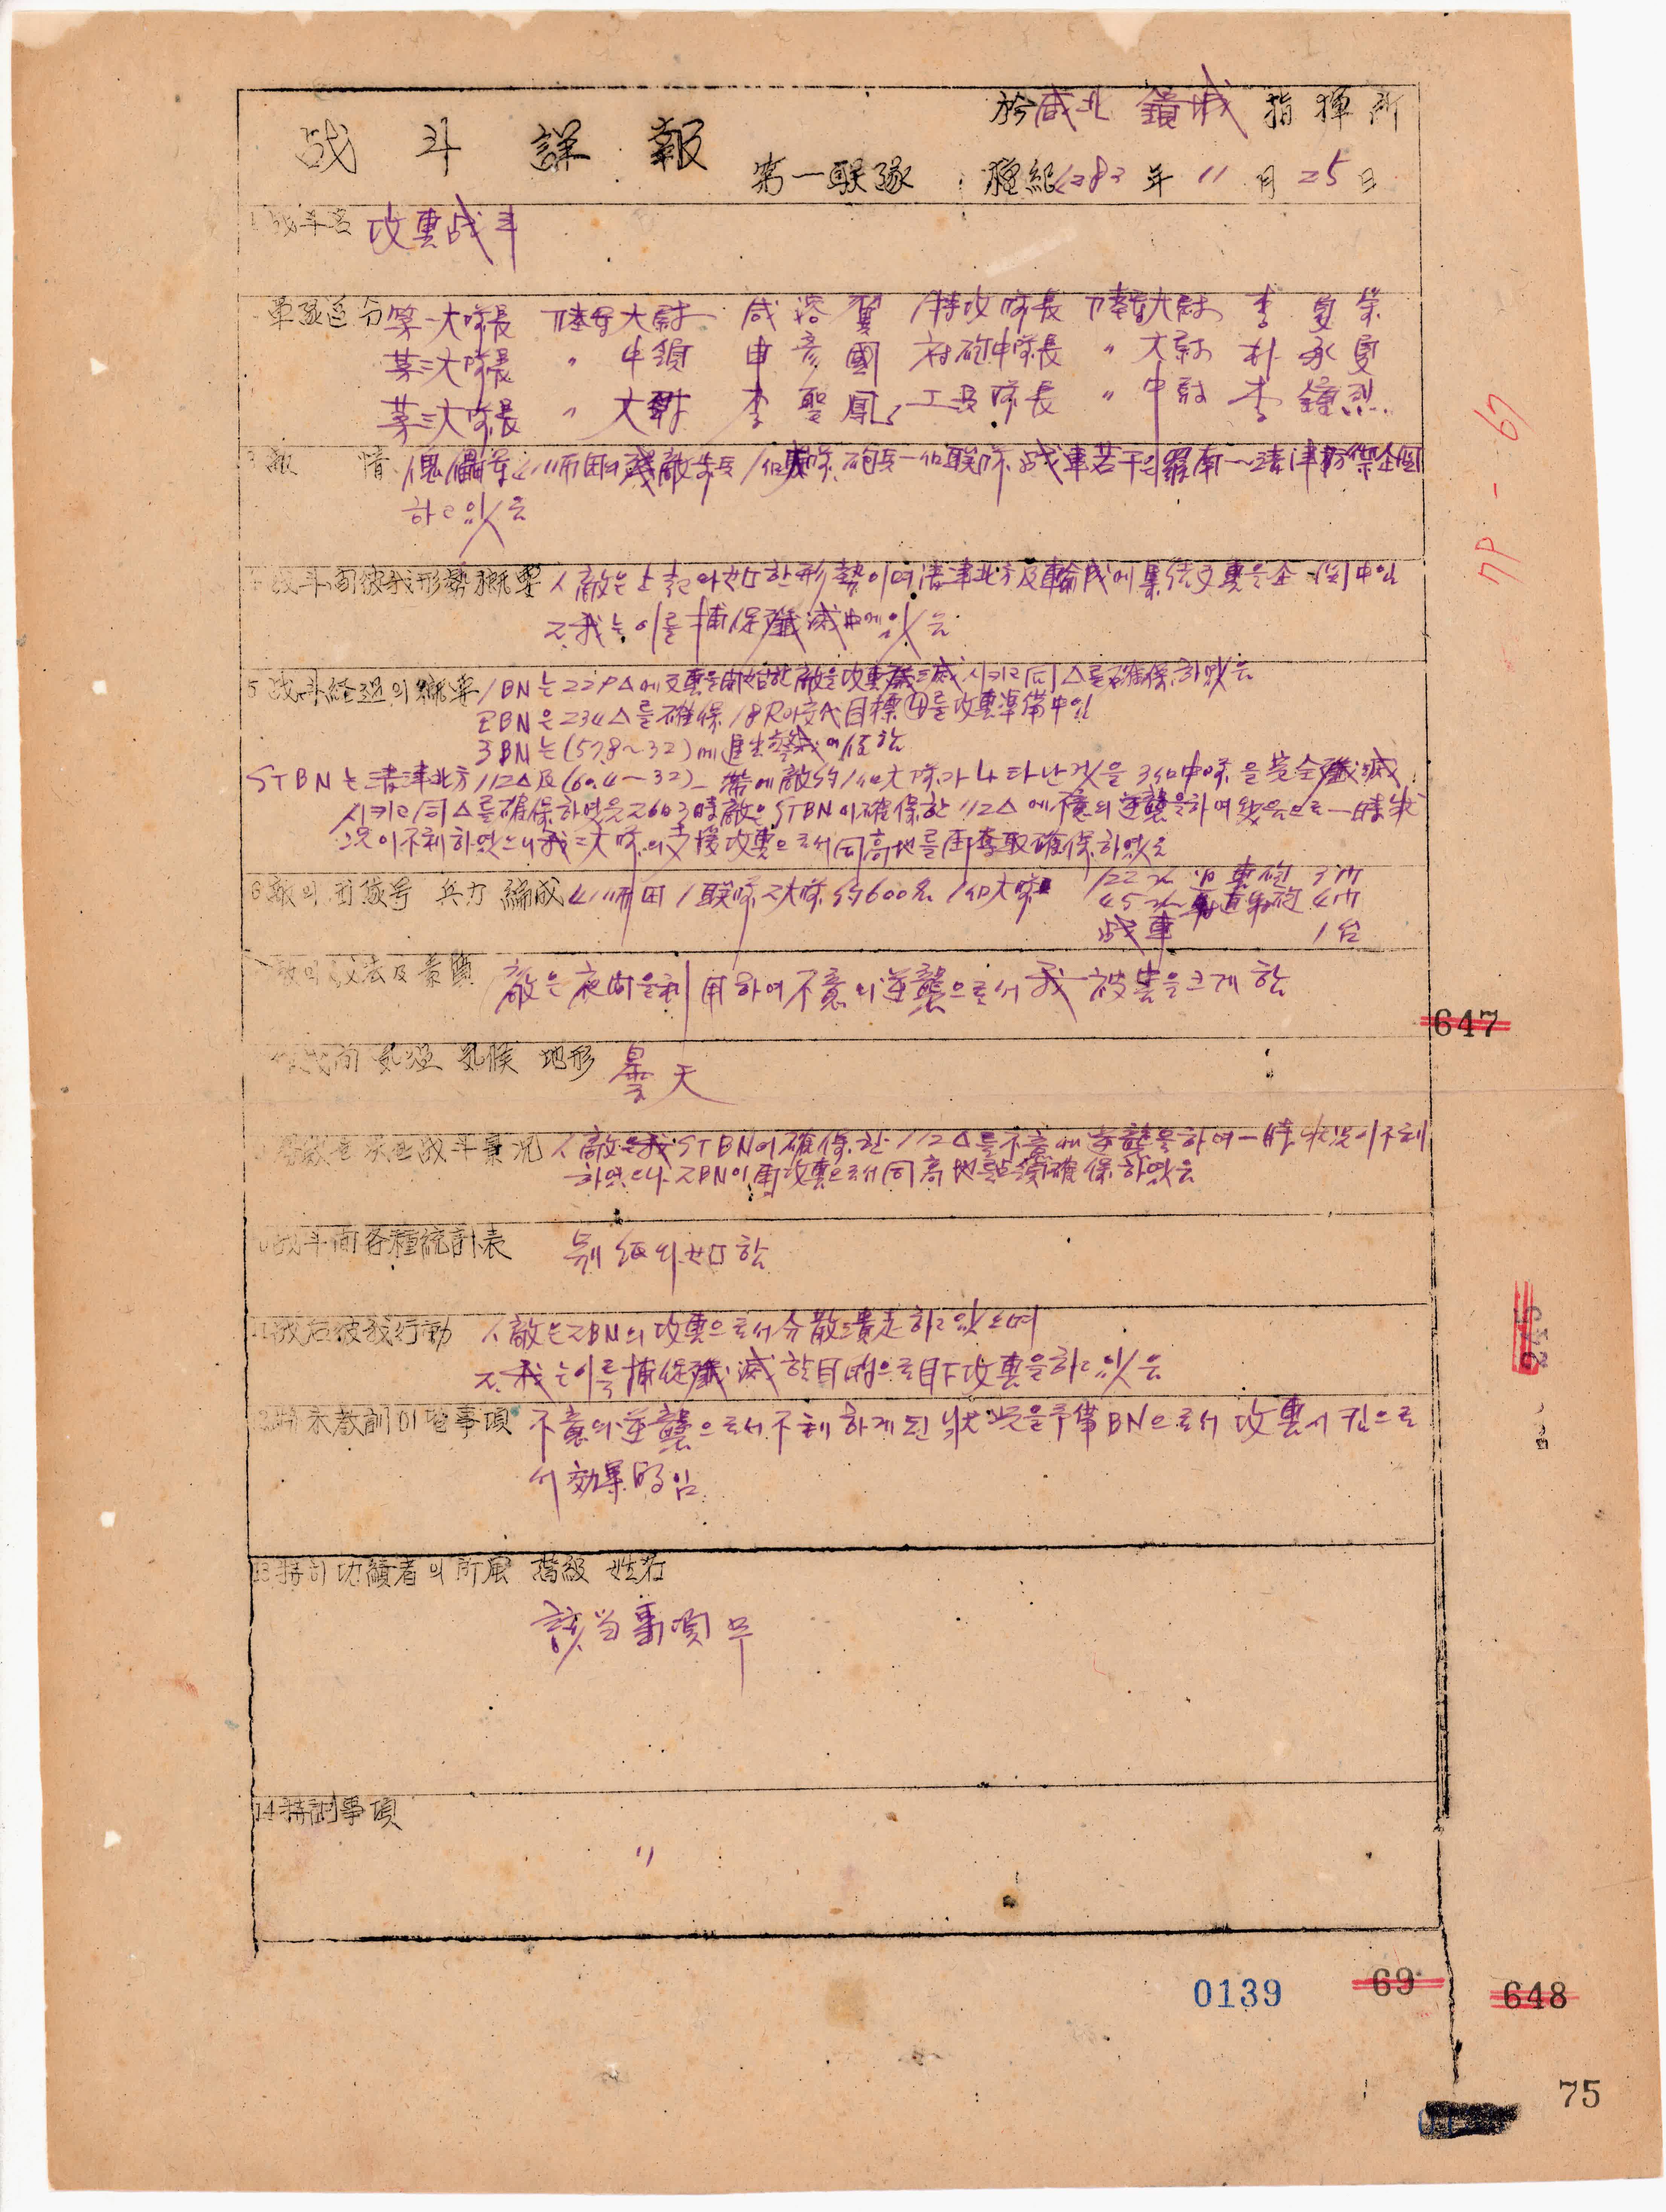 於 咸北 鏡城 指揮所
战斗詳報
第一联隊 檀紀4283年11月25日
1 战斗名 攻擊战斗
軍隊区分 第一大隊長 陸軍大尉 咸 특攻隊長 陸軍大尉 李 夏 榮
第二大隊長 〃 中領 申 彦 國 砲中隊長 〃 大尉 朴 承 夏
第三大隊長 〃 大尉 李 聖 鳳 工兵隊長 〃 中尉 李 鐘 烈
3 敵情 傀儡軍 41师团의 殘敵步兵 1個大隊 砲兵一個联隊 战車若干 羅南~清津 防禦企圖
하고 있음
战斗前彼我形勢概要 1. 敵은 上記와 如한 形勢이며 清津北方 及 輸城에 集結 攻擊을 企圖中임
2. 我는 이를 捕促殲滅中에 있음
5 战斗経過의 概要 1BN는 229△에 攻擊을 開始하 敵을 攻擊 殲滅시키고 同△를 確保하였음
2BN은 234△를 確保 18R이 交代 目標④를 攻擊準備中임
3BN는 (57.8~32)에 進出
STBN는 清津北方 112△ 及 (60.4~32) 一帶에 敵 約 1個大隊가 나타난 것을 3個中隊을 完全殲滅
시키고 同△를 確保하였음 2603時 敵은 STBN이 確保한 112△에 不意의 逆襲을 하여 왔음으로 一時 狀
況이 不利하였으나 我 二大隊의 支援攻擊으로서 同高地를 再奪取 確保하였음
6 敵의 团隊号 兵力 編成 41师团 1联隊 2大隊 約600名 1個大隊 122㎜ 曲車砲 3門
45㎜ 直射砲 4門
战車 1台
敵의 战法及素質 敵은 夜間을 利用하여 不意의 逆襲으로서 我 被害을 크게 함
氣溫 氣候 地形 曇天
战斗景況 1. 敵은 我 STBN이 確保한 112△를 不意에 逆襲을 하여 一時 狀況이 不利
하였으나 2BN이 再攻擊으로서 同高地를 確保하였음
战斗間各種統計表 別紙와 如함
11 战后彼我行動 1. 敵은 2BN의 攻擊으로서 分散潰走하고 있으며
2. 我는 이를 捕促殲滅할 目的으로 目下 攻擊을 하고 있음
將來教訓이 될 事項 不意의 逆襲으로서 不利하게 된 狀況을 予備BN으로서 攻擊시킴으로
서 効果的임
13 特히 功績者의 所属 階級 姓名
該当事項 무
14 特記事項
〃
7P-67
647
0139
69
648
75